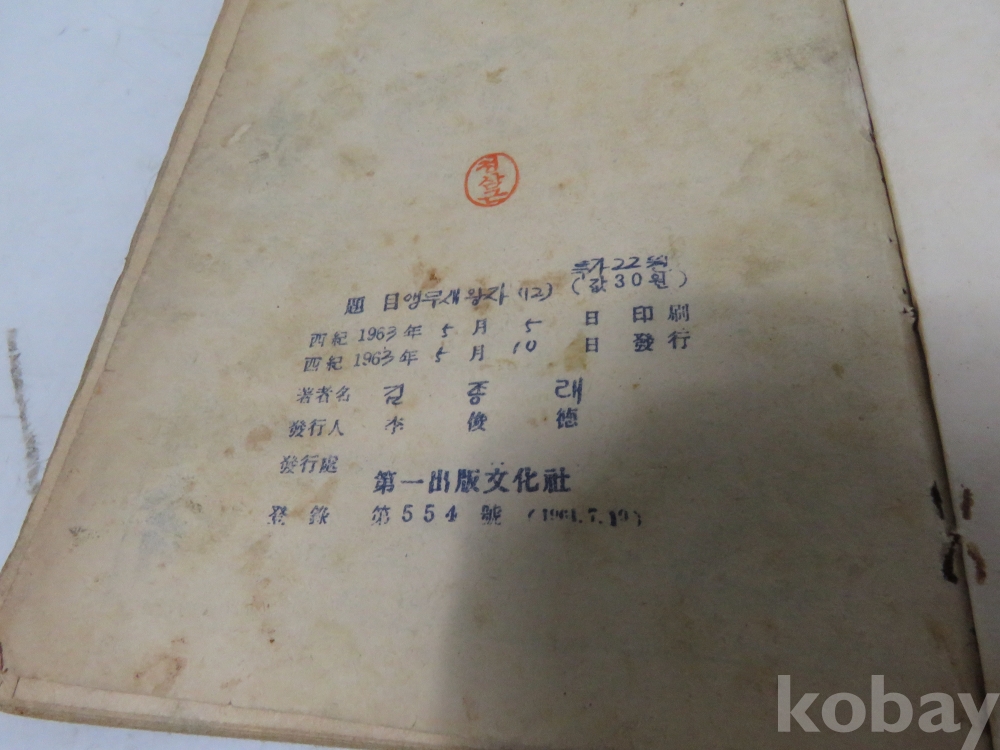 특가 22원
題 目 앵무새 왕자 (12) (값 30원)
西紀 1963 年 5 月 5 日 印刷
西紀 1963 年 5 月 10 日 發行
著者名 김 종 래
發行人 李 俊 德
發行處
第一出版文化社
登錄 第554號 (1961.7.19)
kobay